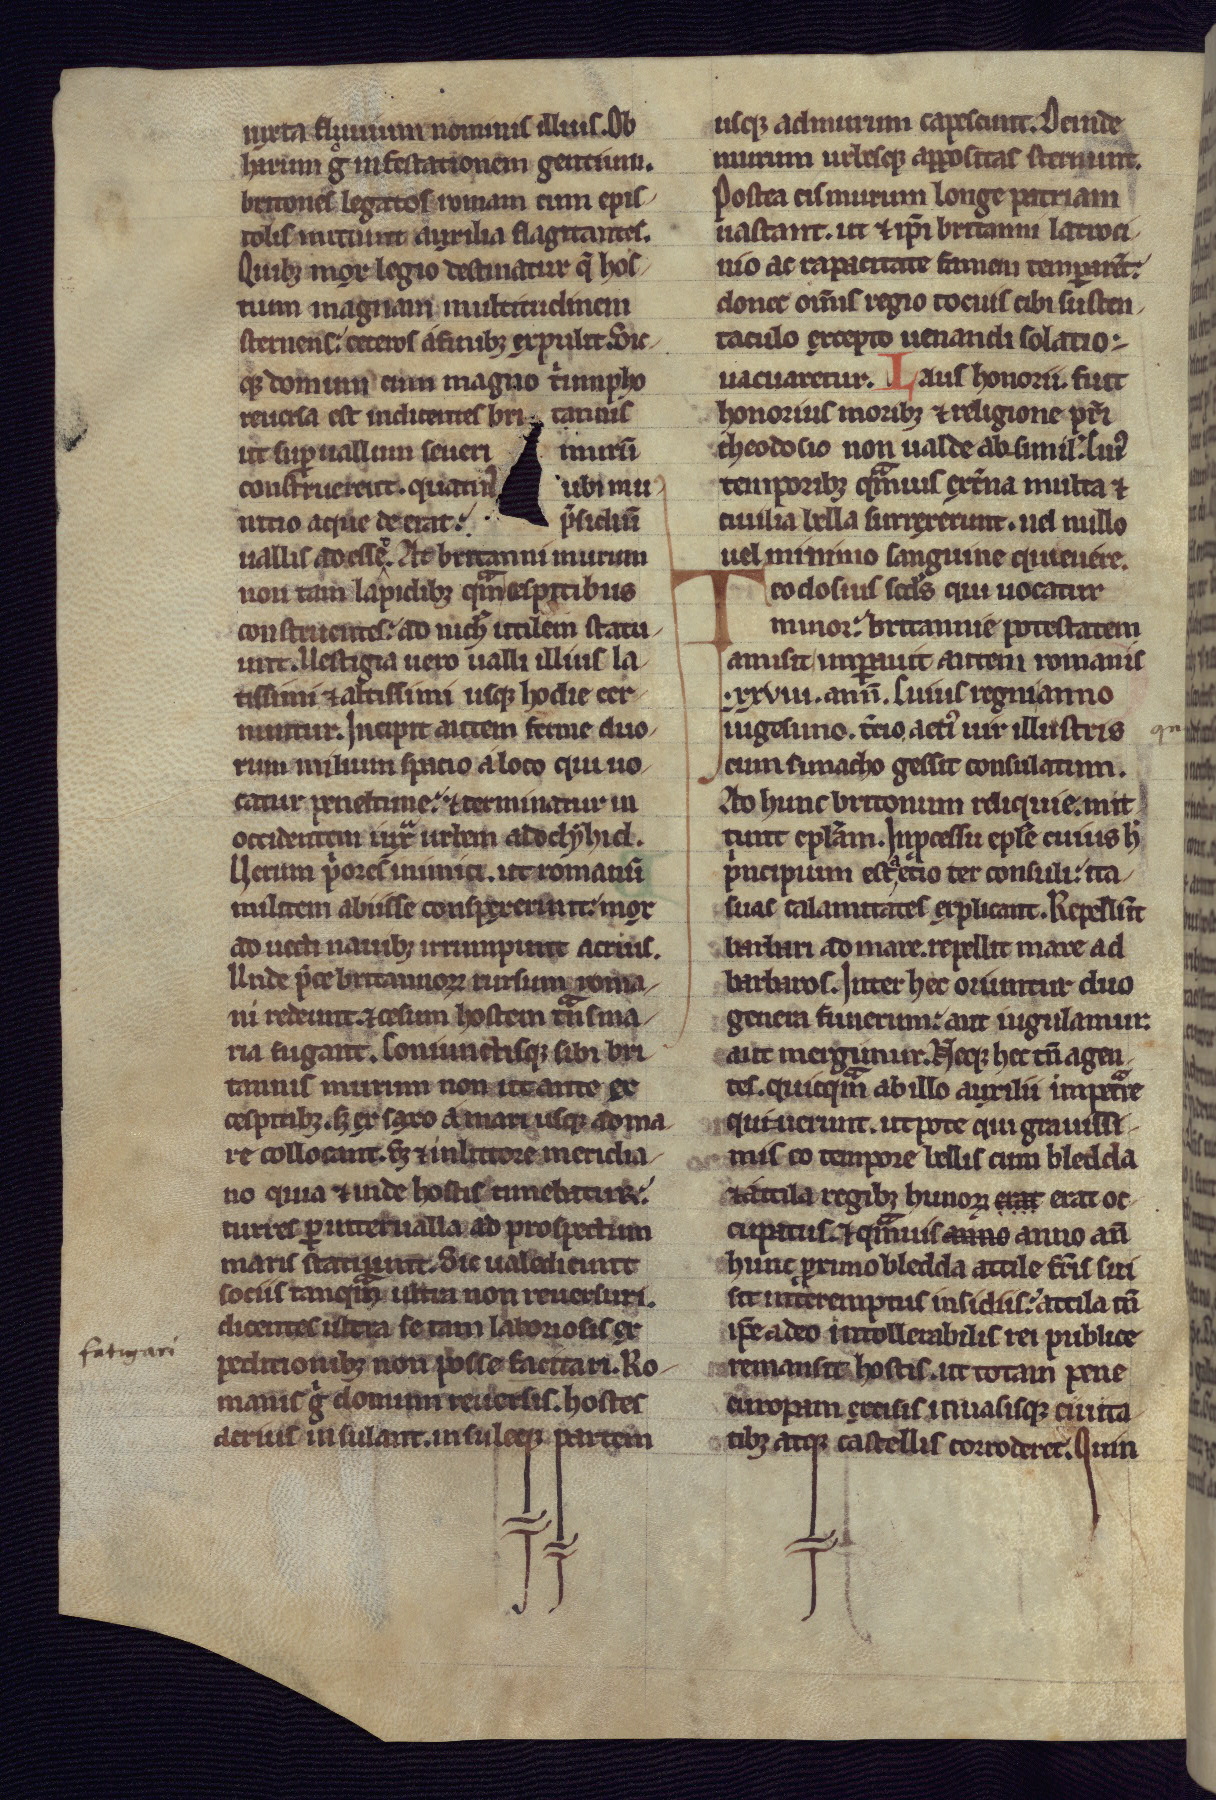 iuxta fluuium nominis illius. Ob
harum g̊ infestationem gentium.
britones legatos romam cum epis
tolis mittunt auxilia flagitantes.
Quibꝫ mox legio destinatur q̄ hos
tium magnam multitudinem
sternens: ceteros a finibꝫ expulit. Sic
qꝫ domum cum magno t̾umpho
reuersa est inducentes bri tannis
ut sup̱ uallum seueri murū
construerent. quatin᷒ ubi mu
nitio aque de erat: p̾sidiū
uallis ad esset. At britanni murum
non tam lapidibꝫ qᵃ̄m cespitibus
construentes: ad nich̄ utilem statu
unt. Uestigia uero ualli illius la
tissimi ⁊ altissimi usqꝫ hodie cer
nuntur. Incipit autem ferme duo
rum milium spacio a loco qui uo
catur peneltune: ⁊ terminatur in
occidentem iuxᵃ urbem aldclyhid.
Uerum p̾ores inimici. ut romanū
militem abiisse conspexerunt: mox
ad uecti nauibꝫ irrumpunt acrius.
Unde p̾ce britannoꝝ rursum roma
ni redeunt. ⁊ cesum hostem tᵃ̄nsma
ria fugant. Coniunctisqꝫ sibi bri
tannis murum non ut ante ex
cespitibꝫ. sꝫ ex saxo a mari usqꝫ ad ma
re collocant. sꝫ ⁊ in littore meridia
no quia ⁊ inde hostis timebatur:
turres p̱ interualla ad prospectum
maris statuunt. Sic ualedicunt
sociis tanqᵃ̄m ultra non reuersuri.
dicentes ultra se tam laboriosis ex
peditionibꝫ non posse facitari. Ro
manis g̊ domum reuersis. hostes
acrius insulant. insuleqꝫ partem
fatigari
usqꝫ ad murum capescunt. Deinde
murum urbesqꝫ appositas sternunt.
Postea cis murum longe patriam
uastant. ut ⁊ ip̄i britanni latroci
nio ac rapacitate famem temp̱arēt:
donec om̄is regio tocius cibi susten
taculo excepto uenandi solatio
uacuaretur. Laus honorii. fuit
honorius moribꝫ ⁊ religione pr̄i
theodosio non ualde absimil̾. Cui᷒
temporibꝫ qᵃ̄muis ext̾na multa ⁊
ciuilia bella surrexerunt. uel nullo
uel minimo sanguine quieuere.
Teodosius sc̄ds qui uocatur
minor: britannie potestatem
amisit imp̱auit autem romanis
.xxviii. ann̄. Cuius regni anno
uigesimo. t̾cio acti᷒ uir illustris
cum simacho gessit consulatum.
Ad hunc britonum reliquie. mit
tunt epl̄am. In p̱cessu epl̄e cuius h̾
p̾ncipium est aetio ter consuli: ita
suas calamitates explicant. Repellūt
barbari ad mare. repellit mare ad
barbaros. Inter hec oriuntur duo
genera funerum: aut iugulamur:
aut mergimur. Neqꝫ hec tn̄ agen
tes. quicqᵃ̄m ab illo auxilii impetᵃre
quiuerunt. ut pote qui grauissi
mis eo tempore bellis cum bledda
⁊ attila regibꝫ hunoꝝ erat erat oc
cupatus. ⁊ qᵃ̄muis anno anno an̄
hunc p̱ximo bledda attile fr̄is sui
sit interemptus insidiis: attila tn̄
ipse adeo intollerabilis rei publice
remansit hostis. ut totam pene
europam excisis inuasisqꝫ ciuita
tibꝫ atqꝫ castellis corroderet. Quin